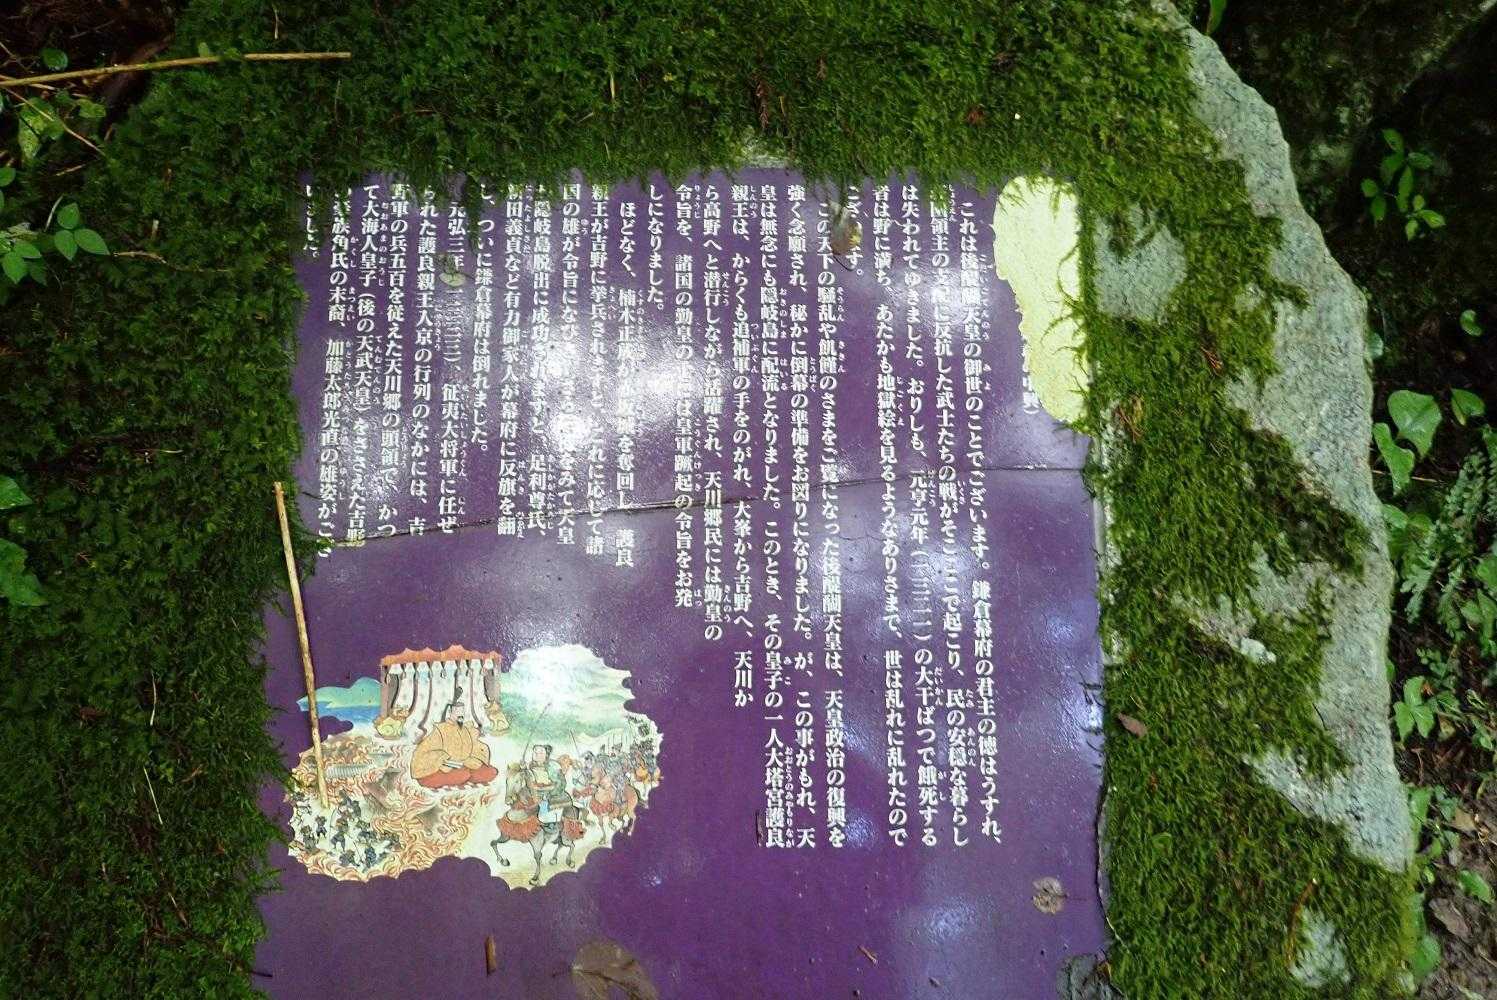 の中興）
これは後醍醐天皇の御世のことでございます。鎌倉幕府の君主の徳はうすれ、
国領主の支配に反抗した武士たちの戦がそこここで起こり、民の安穏な暮らし
は失われてゆきました。おりしも、元亨元年（一三二一）の大干ばつで餓死する
者は野に満ち、あたかも地獄絵を見るようなありさまで、世は乱れに乱れたので
ございます。
この天下の騒乱や飢饉のさまをご覧になった後醍醐天皇は、天皇政治の復興を
強く念願され、秘かに倒幕の準備をお図りになりました。が、この事がもれ、天
皇は無念にも隠岐島に配流となりました。このとき、その皇子の一人大塔宮護良
親王は、からくも追捕軍の手をのがれ、大峯から吉野へ、天川か
ら高野へと潜行しながら活躍され、天川郷民には勤皇の
令旨を、諸国の勤皇の士には皇軍蹶起の令旨をお発
しになりました。
ほどなく、楠木正成が赤坂城を奪回し、護良
親王が吉野に挙兵されますと、これに応じて諸
国の雄が令旨になびき をみて天皇
隠岐島脱出に成功されますと、足利尊氏、
新田義貞など有力御家人が幕府に反旗を翻
し、ついに鎌倉幕府は倒れました。
元弘三年（一三三三）、征夷大将軍に任ぜ
られた護良親王入京の行列のなかには、吉
野軍の兵五百を従えた天川郷の頭領で、かつ
て大海人皇子（後の天武天皇）をささえた吉野
族角氏の末裔、加藤太郎光直の雄姿がござ
いました。